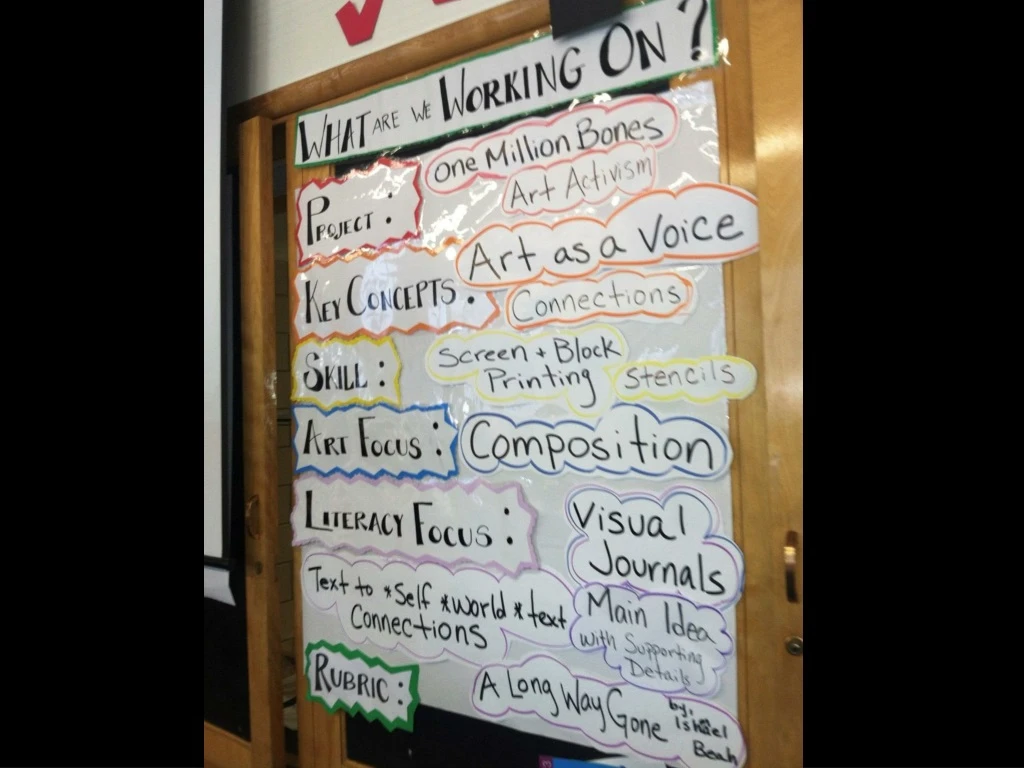 WHAT ARE WE WORKING ON?
PROJECT:
One Million Bones
Art Activism
KEY CONCEPTS:
Art as a Voice
Connections
SKILL:
Screen + Block
Printing
Stencils
ART FOCUS:
Composition
LITERACY FOCUS:
Visual
Journals
Text to *Self *world *text
Connections
Main Idea
with Supporting
Details
RUBRIC:
A Long Way Gone
by,
Ishmael
Beah